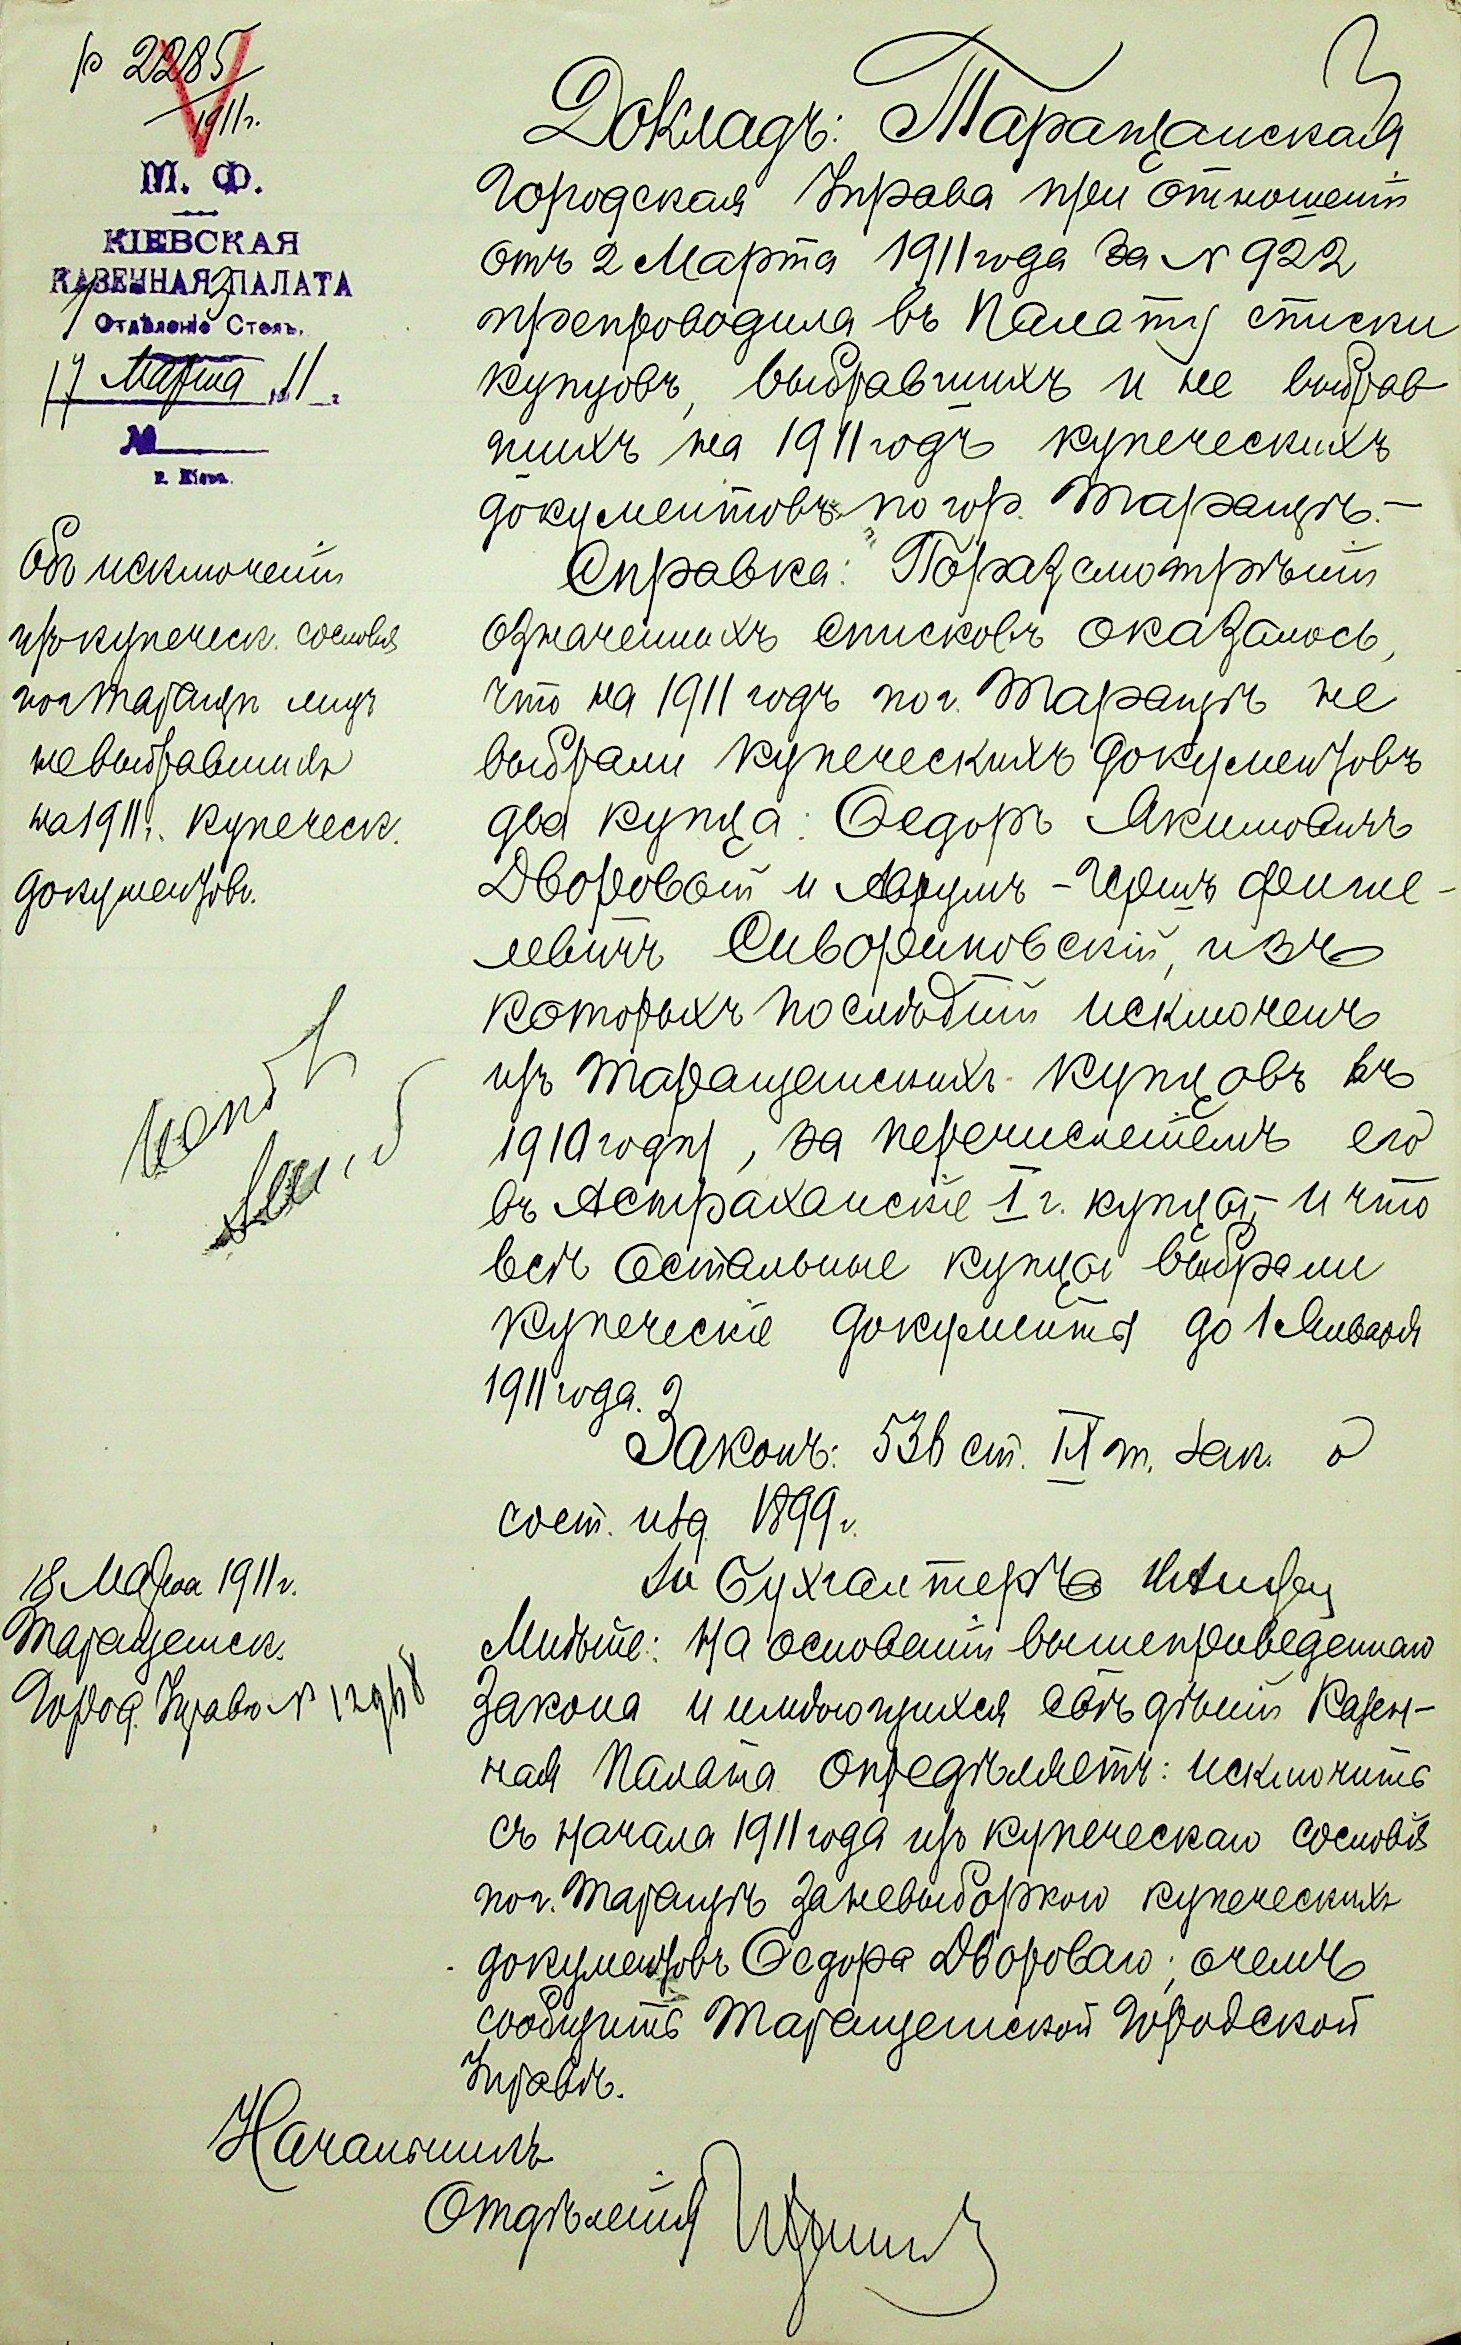 р 2285
1911 г.
М. Ф.
КІЕВСКАЯ
КАЗЕННАЯ ПАЛАТА
Отдѣленіе Столъ.
1 3
17 Марта 11
№
г. Кіевъ.
Объ исключеніи
изъ купеческ. сословія
по г. Таращѣ лицъ
не выбравшихъ
на 1911 г. купеческ.
документовъ.
18 Марта 1911 г.
Таращанск.
Город. Управѣ №
Докладъ: Таращанская
Городская Управа при отношеніи
отъ 2 Марта 1911 года за № 922
препроводила въ Палату списки
купцовъ, выбравшихъ и не выбрав
шихъ на 1911 годъ купеческихъ
документовъ по гор. Таращѣ. —
Справка: По разсмотрѣніи
означенныхъ списковъ оказалось,
что на 1911 годъ по г. Таращѣ не
выбрали купеческихъ документовъ
два купца: Ѳедоръ Якимовичъ
Дворовой и -Гершъ Фише-
левичъ Сивориновскій, изъ
которыхъ послѣдній исключенъ
изъ Таращанскихъ купцовъ въ
1910 году, за перечисленіемъ его
въ Астраханскіе I г. купцы, — и что
всѣ остальные купцы выбрали
купеческіе документы до 1 Января
1911 года.
Законъ: 53 ст. IX т. Зак. о
сост. изд. 1899 г.
За Бухгалтера
Мнѣніе: На основаніи вышеприведеннаго
закона и имѣющихся свѣдѣній Казен-
ная Палата опредѣляетъ: исключить
съ начала 1911 года изъ купеческаго сословія
по г. Таращѣ за невыборкою купеческихъ
документовъ Ѳедора Дворового; о чемъ
сообщить Таращанской Городской
Управѣ.
Начальникъ
Отдѣленія